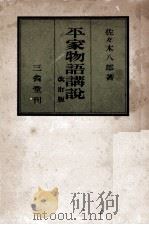 佐々木八郎著
平家物語講説
改訂版
三省堂刊